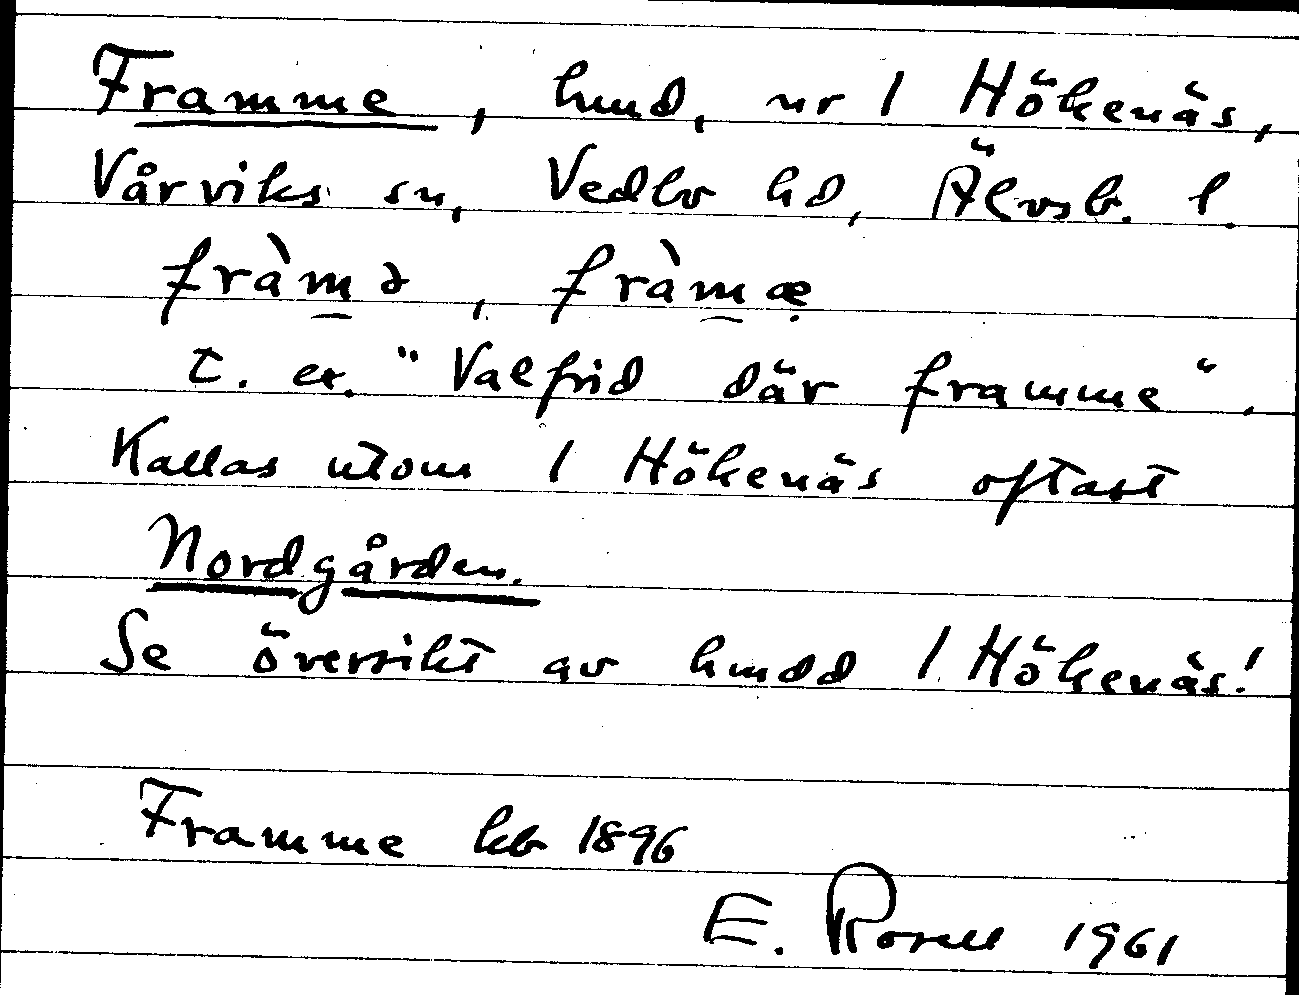 Framme, hmd, nr 1 Hökenäs,
Vårviks sn, Vedbo hd, Älvsb. l.
fràmə, fràmæ̣
t. ex. "Valfrid där framme".
Kallas utom 1 Hökenäs oftast
Nordgården.
Se översikt av hmdd 1 Hökenäs!
Framme kb 1896
E. Rosell 1961